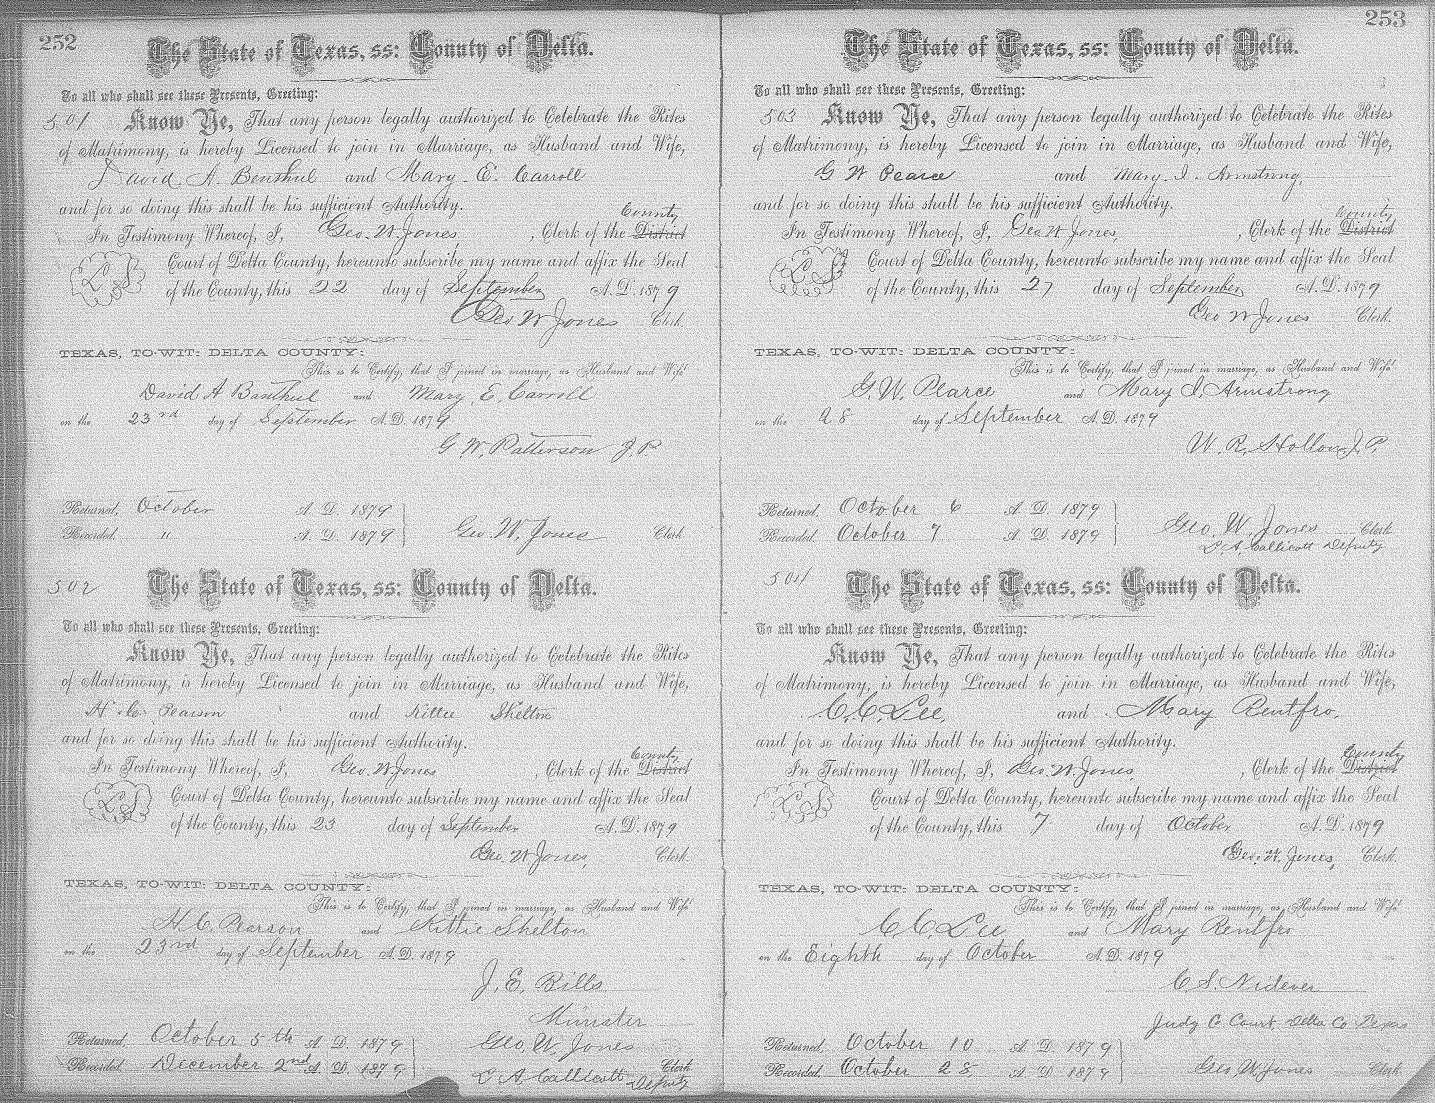 252
The State of Texas, ss: County of Delta.
To all who shall see these Presents, Greeting:
501 Know Ye, That any person legally authorized to Celebrate the Rites
of Matrimony, is hereby Licensed to join in Marriage, as Husband and Wife,
David A. Benthul and Mary E. Carroll
and for so doing this shall be his sufficient Authority.
County
In Testimony Whereof, I, Geo. W Jones, , Clerk of the District
L S Court of Delta County, hereunto subscribe my name and affix the Seal
of the County, this 22 day of September A. D. 1879
Geo W Jones Clerk.
TEXAS, TO-WIT: DELTA COUNTY:
This is to Certify, that I joined in marriage, as Husband and Wife
David A Banthul and Mary E. Carroll
on the 23rd day of September A. D. 1879
G W. Patterson J. P.
Returned, October A. D. 1879
Recorded, " A. D. 1879 Geo. W. Jones Clerk
502 The State of Texas, ss: County of Delta.
To all who shall see these Presents, Greeting:
Know Ye, That any person legally authorized to Celebrate the Rites
of Matrimony, is hereby Licensed to join in Marriage, as Husband and Wife,
H. C. Pearson and Kittie Shelton
and for so doing this shall be his sufficient Authority.
County
In Testimony Whereof, I, Geo. W Jones , Clerk of the District
L S Court of Delta County, hereunto subscribe my name and affix the Seal
of the County, this 23 day of September A. D. 1879
Geo. W Jones, Clerk.
TEXAS, TO-WIT: DELTA COUNTY:
This is to Certify, that I joined in marriage, as Husband and Wife
H. C. Pearson and Kittie Shelton
on the 23rd day of September A. D. 1879
J. E. Bills
Minister
Returned, October 5th A. D. 1879 Geo. W. Jones
Recorded, December 2nd A. D. 1879 Clerk
L A Callicott Deputy
253
The State of Texas, ss: County of Delta.
To all who shall see these Presents, Greeting:
503 Know Ye, That any person legally authorized to Celebrate the Rites
of Matrimony, is hereby Licensed to join in Marriage, as Husband and Wife,
G W Pearce and Mary I. Armstrong,
and for so doing this shall be his sufficient Authority.
County
In Testimony Whereof, I, Geo W Jones, , Clerk of the District
L S Court of Delta County, hereunto subscribe my name and affix the Seal
of the County, this 27 day of September A. D. 1879
Geo W Jones Clerk.
TEXAS, TO-WIT: DELTA COUNTY:
This is to Certify, that I joined in marriage, as Husband and Wife
G. W. Pearce and Mary I. Armstrong
on the 28 day of September A. D. 1879
W. R. Hollon J. P.
Returned, October 6 A. D. 1879
Recorded, October 7 A. D. 1879 Geo. W. Jones Clerk
L A. Callicott Deputy
504 The State of Texas, ss: County of Delta.
To all who shall see these Presents, Greeting:
Know Ye, That any person legally authorized to Celebrate the Rites
of Matrimony, is hereby Licensed to join in Marriage, as Husband and Wife,
C. C. Lee, and Mary Rentfro.
and for so doing this shall be his sufficient Authority.
County
In Testimony Whereof, I, Geo. W. Jones, , Clerk of the District
L S Court of Delta County, hereunto subscribe my name and affix the Seal
of the County, this 7 day of October A. D. 1879
Geo. W. Jones, Clerk.
TEXAS, TO-WIT: DELTA COUNTY:
This is to Certify, that I joined in marriage, as Husband and Wife
C C. Lee and Mary Rentfro
on the Eighth day of October A. D. 1879
C. S. Nidever
Judg C. Court Delta Co Texas
Returned, October 10 A. D. 1879
Recorded, October 28 A. D. 1879 Geo. W Jones Clerk